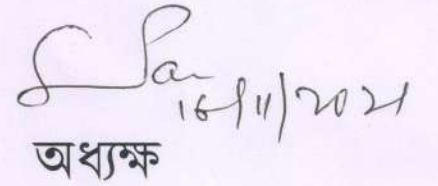 16/11/2021
অধ্যক্ষ